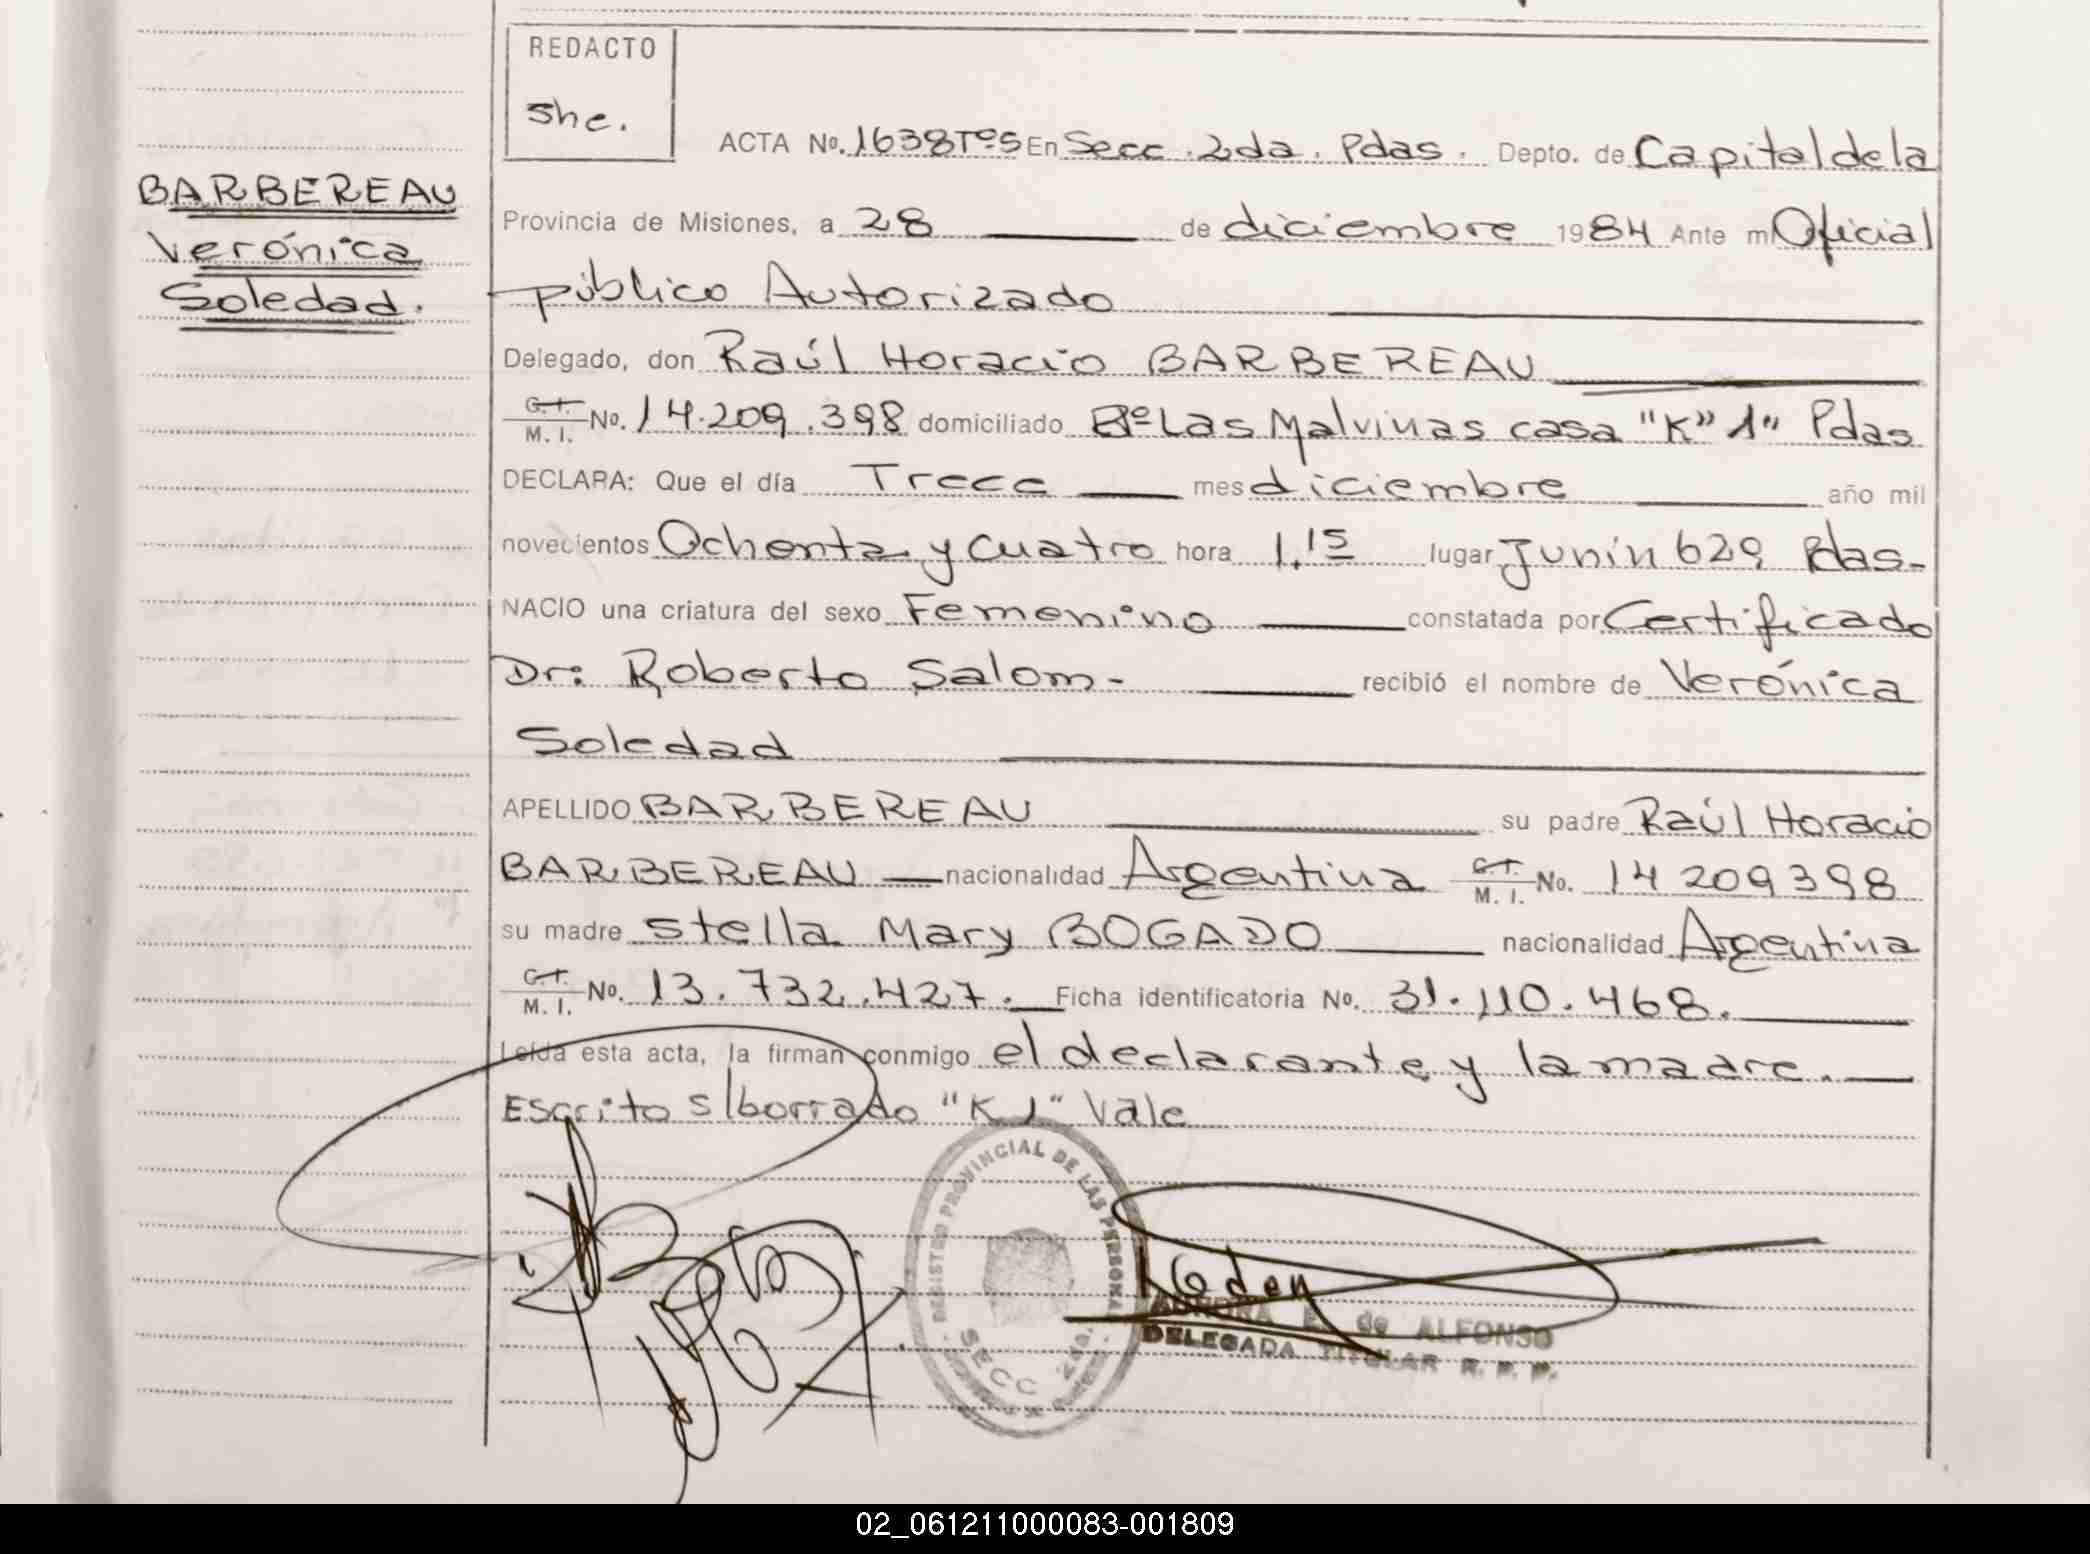 REDACTO
She.
ACTA No. 1638 Tº 5 En Secc. 2da. Pdas. Depto. de Capital de la
BARBEREAU
Verónica
Soledad.
Provincia de Misiones, a 28 de diciembre 1984 Ante mi Oficial
público Autorizado
Delegado, don Raúl Horacio BARBEREAU
C.I. M. I. No. 14.209.398 domiciliado Bº Las Malvinas casa "K" 1" Pdas
DECLARA: Que el día Trece mes diciembre año mil
novecientos Ochenta y cuatro hora 1.15 lugar Junín 629 Pdas-
NACIO una criatura del sexo Femenino constatada por Certificado
Dr: Roberto Salom- recibió el nombre de Verónica
Soledad
APELLIDO BARBEREAU su padre Raúl Horacio
BARBEREAU nacionalidad Argentina C.I. M. I. No. 14 209398
su madre Stella Mary BOGADO nacionalidad Argentina
C.I. M. I. No. 13.732.427. Ficha identificatoria No. 31.110.468.
Leída esta acta, la firman conmigo el declarante y la madre.
Escrito s/borrado "K 1" Vale
REGISTRO PROVINCIAL DE LAS PERSONAS
SECC 2da.
E. de ALFONSO
DELEGADA TITULAR R. P. P.
02_061211000083-001809